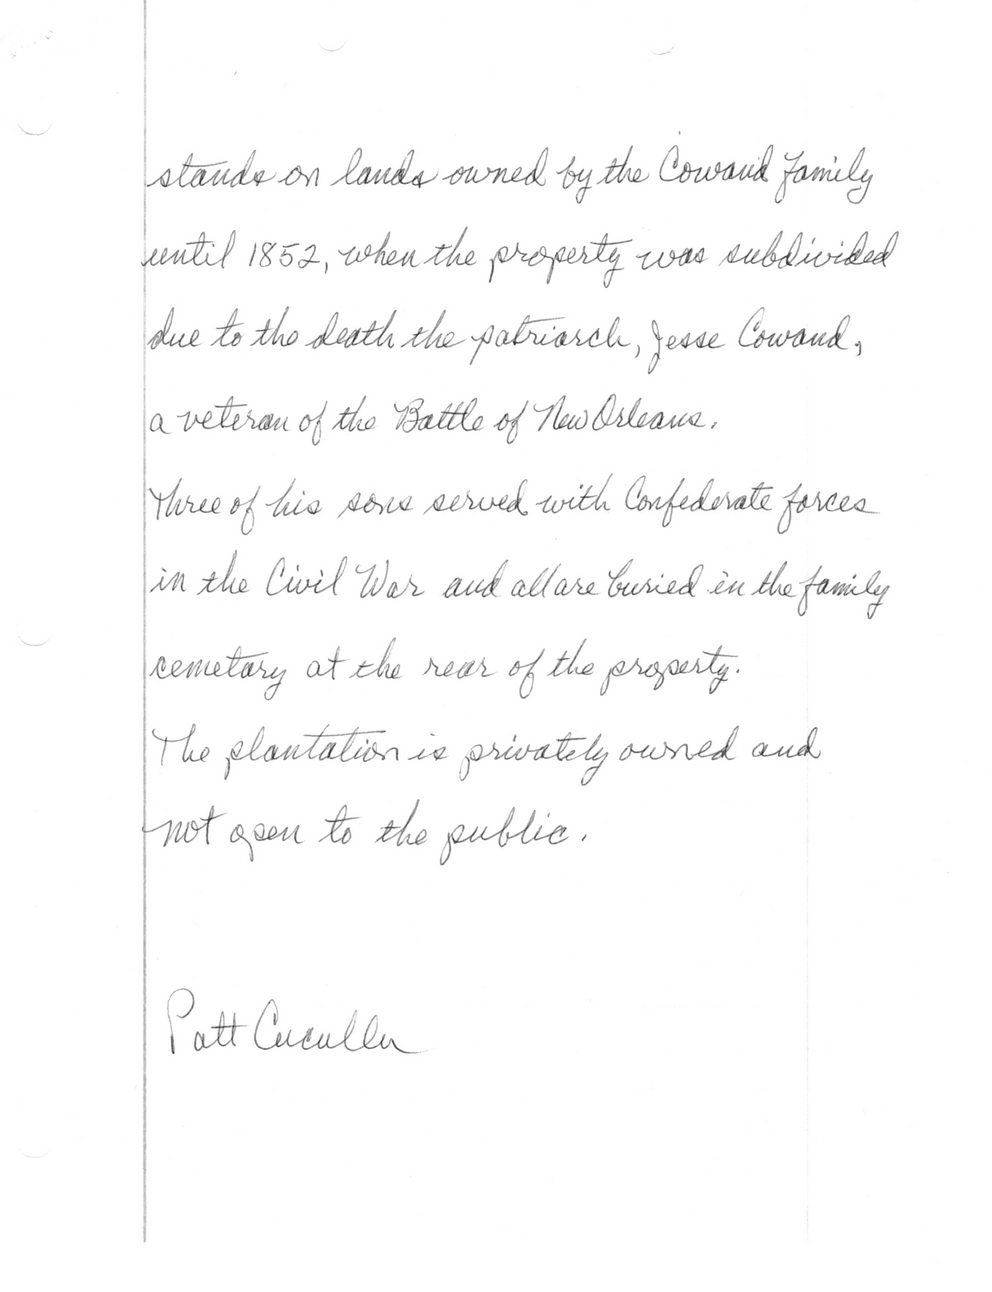 stands on lands owned by the Cowand family
until 1852, when the property was subdivided
due to the death the patriarch, Jesse Cowand,
a veteran of the Battle of New Orleans.
Three of his sons served with Confederate forces
in the Civil War and all are buried in the family
cemetary at the rear of the property.
The plantation is privately owned and
not open to the public.
Patt Cucullu